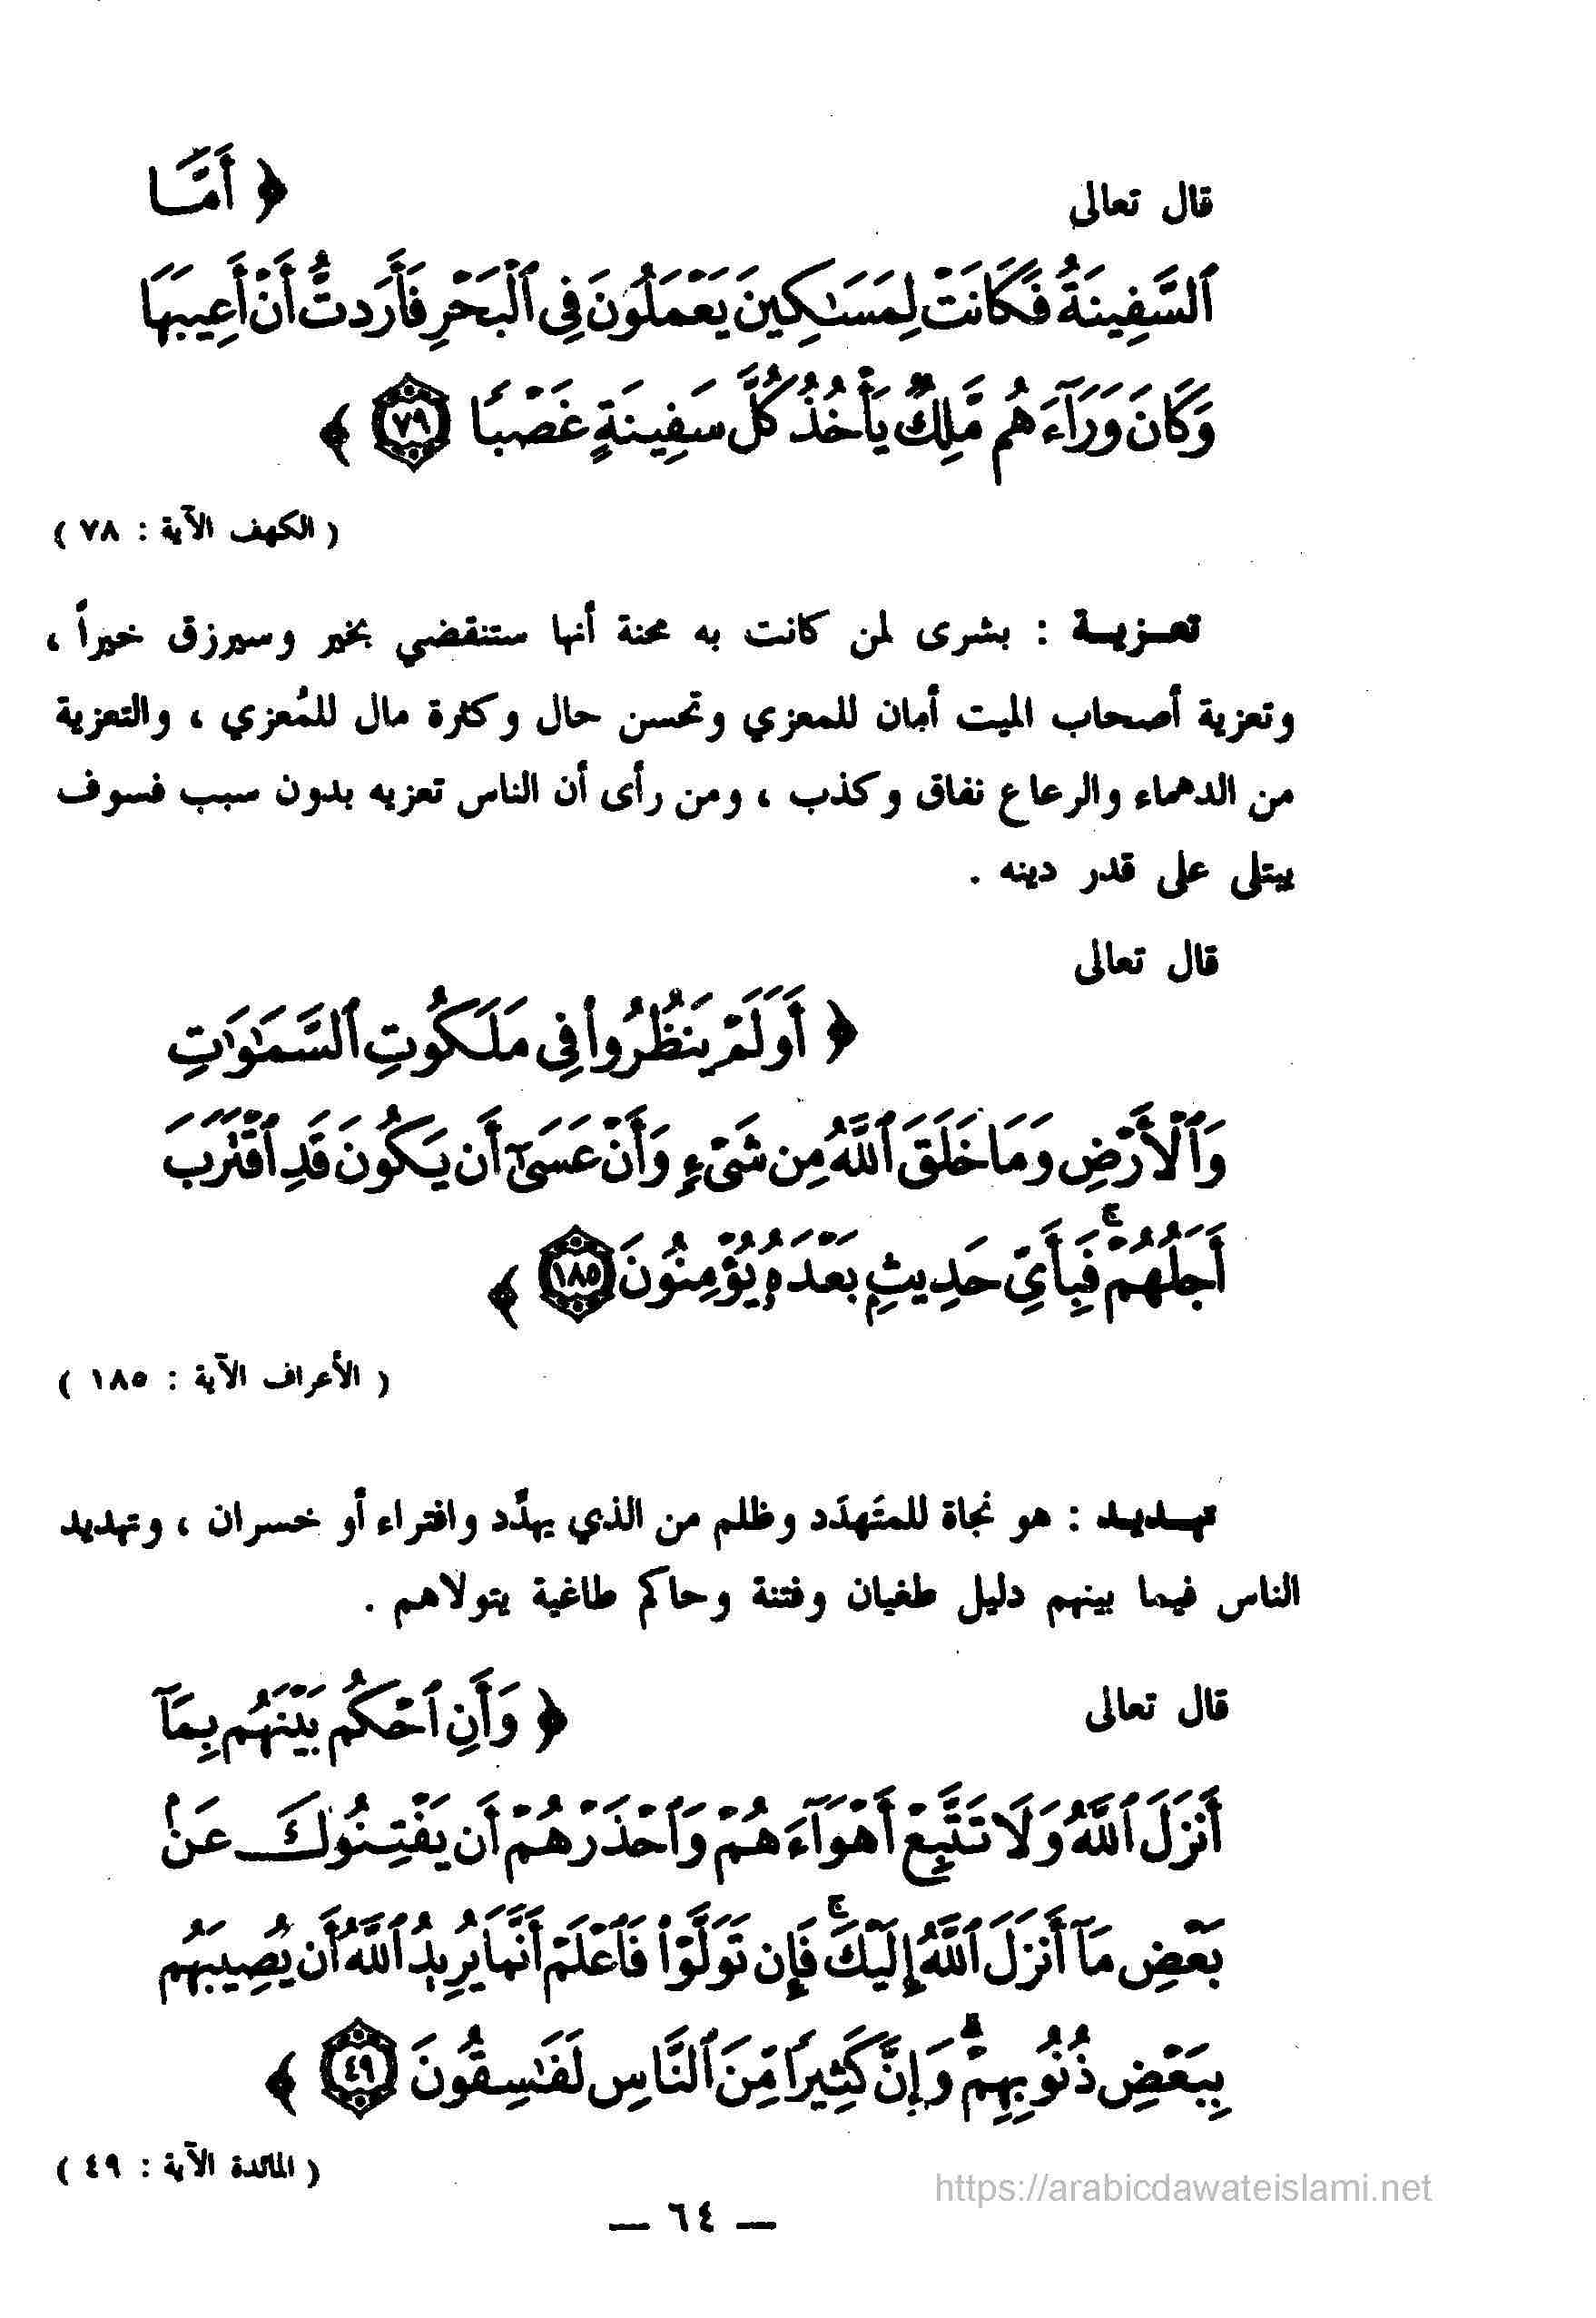 قال تعالى ﴿ أَمَّا
ٱلسَّفِينَةُ فَكَانَتْ لِمَسَـٰكِينَ يَعْمَلُونَ فِى ٱلْبَحْرِ فَأَرَدتُّ أَنْ أَعِيبَهَا
وَكَانَ وَرَآءَهُم مَّلِكٌ يَأْخُذُ كُلَّ سَفِينَةٍ غَصْبًا ٧٩ ﴾
( الكهف الآية : ٧٨ )
تعـزيـة : بشرى لمن كانت به محنة أنها ستنقضي بخير وسيرزق خيراً ،
وتعزية أصحاب الميت أمان للمعزي وتحسن حال وكثرة مال للمُعزي ، والتعزية
من الدهماء والرعاع نفاق وكذب ، ومن رأى أن الناس تعزيه بدون سبب فسوف
يبتلى على قدر دينه .
قال تعالى
﴿ أَوَلَمْ يَنظُرُوا۟ فِى مَلَكُوتِ ٱلسَّمَـٰوَٰتِ
وَٱلْأَرْضِ وَمَا خَلَقَ ٱللَّهُ مِن شَىْءٍ وَأَنْ عَسَىٰٓ أَن يَكُونَ قَدِ ٱقْتَرَبَ
أَجَلُهُمْ ۖ فَبِأَىِّ حَدِيثٍۭ بَعْدَهُۥ يُؤْمِنُونَ ١٨٥ ﴾
( الأعراف الآية : ١٨٥ )
تهـديـد : هو نجاة للمتَهدَد وظلم من الذي يهدِّد وافتراء أو خسران ، وتهديد
الناس فيما بينهم دليل طغيان وفتنة وحاكم طاغية يتولاهم .
قال تعالى ﴿ وَأَنِ ٱحْكُم بَيْنَهُم بِمَآ
أَنزَلَ ٱللَّهُ وَلَا تَتَّبِعْ أَهْوَآءَهُمْ وَٱحْذَرْهُمْ أَن يَفْتِنُوكَ عَنۢ
بَعْضِ مَآ أَنزَلَ ٱللَّهُ إِلَيْكَ ۖ فَإِن تَوَلَّوْا۟ فَٱعْلَمْ أَنَّمَا يُرِيدُ ٱللَّهُ أَن يُصِيبَهُم
بِبَعْضِ ذُنُوبِهِمْ ۗ وَإِنَّ كَثِيرًا مِّنَ ٱلنَّاسِ لَفَـٰسِقُونَ ٤٩ ﴾
( المائدة الآية : ٤٩ )
https://arabicdawateislami.net
— ٦٤ —